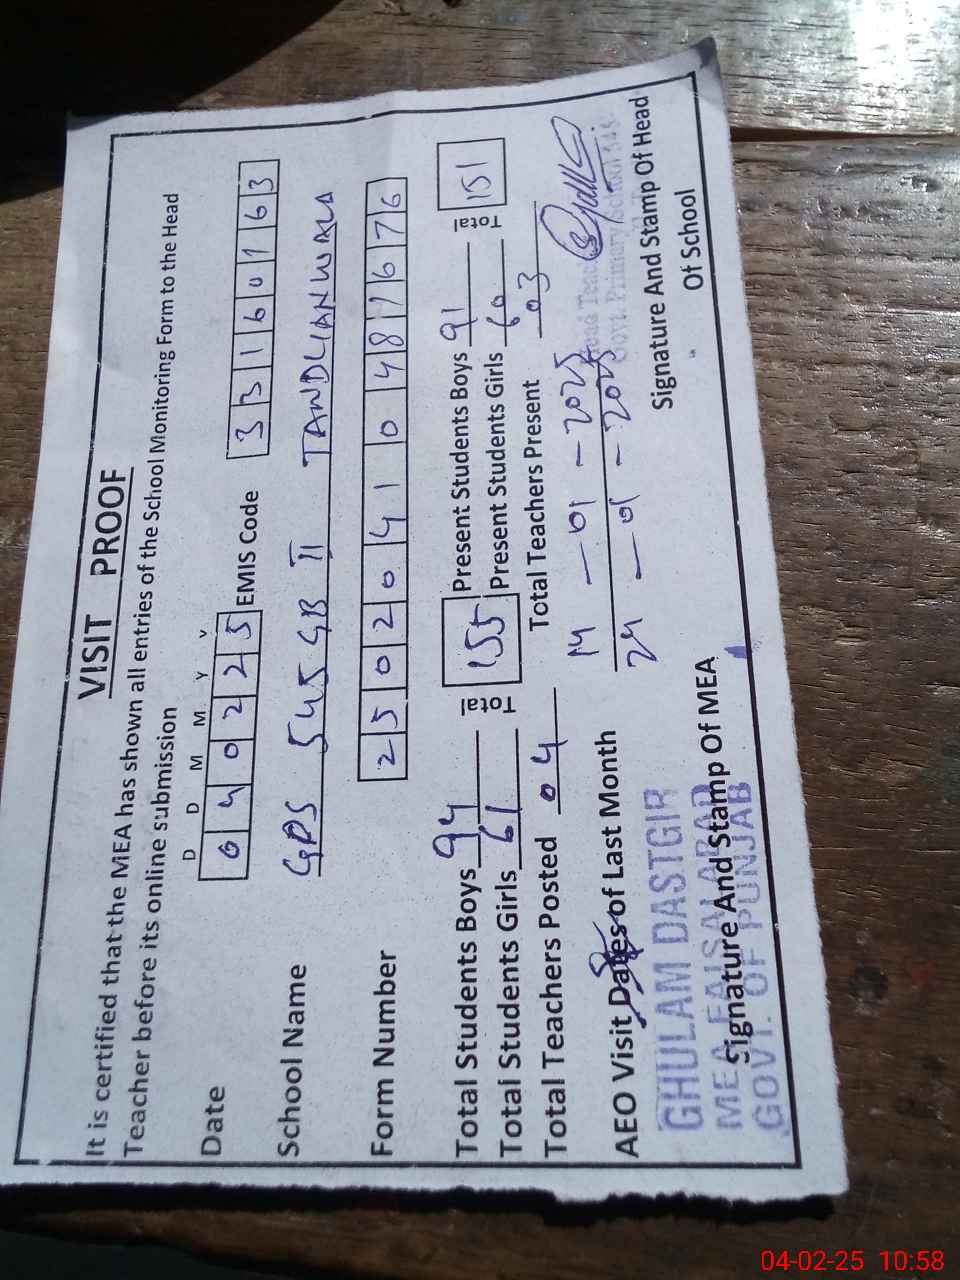 VISIT PROOF
It is certified that the MEA has shown all entries of the School Monitoring Form to the Head
Teacher before its online submission
D D M M Y Y
Date 04 02 25 EMIS Code 33160163
School Name GPS 545 GB II TANDLIANWALA
Form Number 25020410481676
Total Students Boys 94 Total 155 Present Students Boys 91 Total 151
Total Students Girls 61 Present Students Girls 60
Total Teachers Posted 04 Total Teachers Present 03
AEO Visit Dates of Last Month 14 - 01 - 2025
24 - 01 - 2025
GHULAM DASTGIR
MEA FAISALABAD
GOVT. OF PUNJAB
Signature And Stamp Of MEA
Head Teacher
Govt. Primary School 545
Signature And Stamp Of Head
Of School
04-02-25 10:58